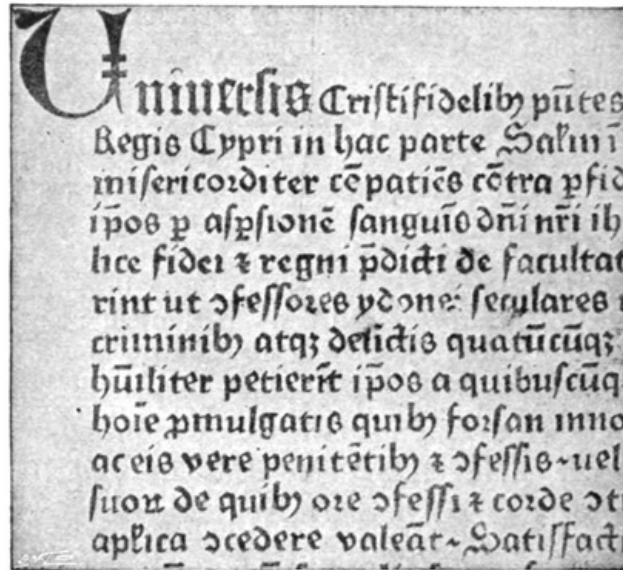 Uniuersis Cristifidelibꝫ pn̄tes
Regis Cypri in hac parte Salm̄ ī
misericorditer cōpatiēs cōtra ꝑfid
ip̄os ꝑ aspersionē sanguīs dn̄i nr̄i ih
lice fidei ⁊ regni p̄dicti de facultat
rint ut ↄfessores ydonei seculares
criminibꝫ atqꝫ delictis quātūcūqꝫ
hūiliter petierīt ip̄os a quibuscūq
hoīe ꝓmulgatis quibꝫ forsan inno
ac eis vere penitētibꝫ ⁊ ↄfessis uel
suoꝝ de quibꝫ ore ↄfessi ⁊ corde ↄt
apl̄ica ↄcedere valeāt Satisfacti